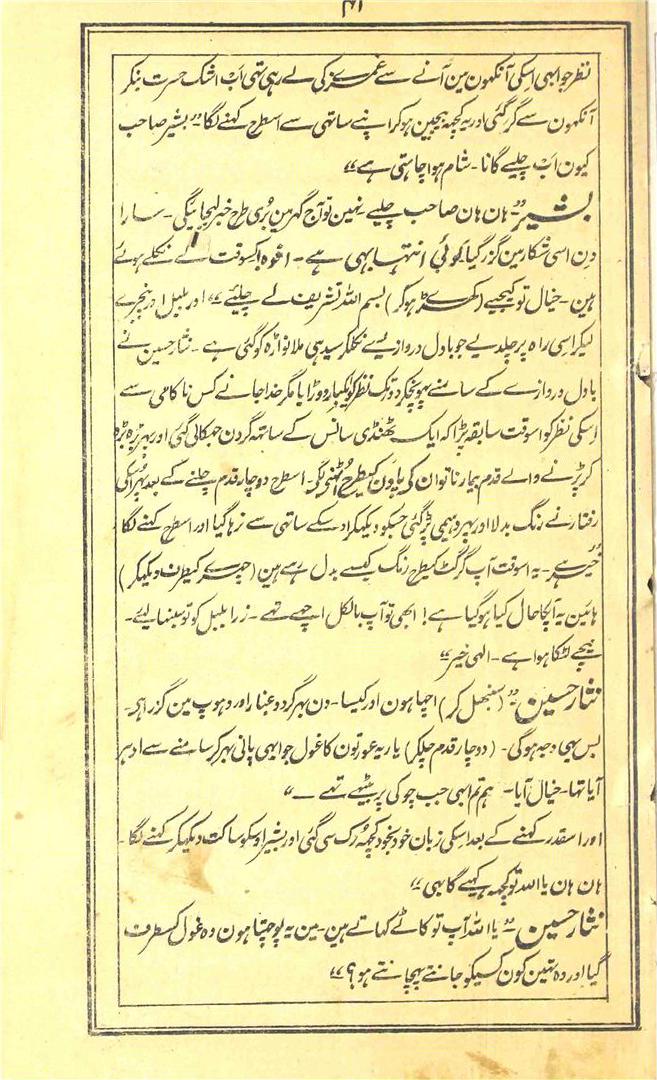 ۴۱
نظر جو ابہی اسکی آنکہون مین آنے سے غمزے کر رہی تہی اب اشک حسرت بنکر
آنکہون سے گر گئی اور یہ کچہہ بیچین ہو کر اپنے ساتہی سے اسطرح کہنے لگا ”بشیر صاحب
کیون اب چلیے گا نا - شام ہوا چاہتی ہے“
بشیر ”ہان ہان صاحب چلیے - نہین تو آج گہر مین بُری طرح خبر لیجائیگی - سارا
دن اسی شکار مین گزر گیا کوئی انتہا بہی ہے - افوہ کسوقت کے نکلے ہوئے
ہین - خیال تو کیجیے (کھڑے ہو کر) بسم اللہ تشریف لے چلیئے“ اور بلبل اور پنجرے
لیکر اسی راہ پر چلدیے جو بادل دروازے سے نکلکر سیدہی ملانواڑہ کو گئی ہے - نثار حسین نے
بادل دروازے کے سامنے پہونچکر دو تک نظر کو یکبار دوڑایا مگر خدا جانے کس ناکامی سے
اسکی نظر کو اسوقت سابقہ پڑا کہ ایک ٹھنڈی سانس کے ساتہہ گردن جہکالی گئی اور پہر بڑہ بڑہ
کر پڑنے والے قدم بیمار ناتوان کی پاون کیطرح اُٹہنے لگے - اسطرح دو چار قدم چلنے کے بعد پہر اسکی
رفتار نے رنگ بدلا اور پہر وہیمی پڑ گئی جسکو دیکہکر اسکے ساتہی سے نرہا گیا اور اسطرح کہنے لگا
”خیر ہے - یہ اسوقت آپ گرگٹ کیطرح رنگ کیسے بدل رہے ہین (چہرے کیطرف دیکہکر)
ہائین یہ آپکا حال کیا ہو گیا ہے! ابھی تو آپ بالکل اچہے تہے - زرا بلبل کو تو سبنہالیئے -
نیچے لٹکا ہوا ہے - الہی خیر“
نثار حسین ”(سنبھل کر) اچہا ہون اور کیسا - دن بہر گرد و غبار اور دہوپ مین گزرا ہے -
بس یہی وجہ ہو گی - (دو چار قدم چلکر) یار یہ عورتون کا غول جو ابہی پانی بہر کر سامنے سے ادہر
آیا تہا - خیال آیا - ہم تم ابہی جب چوکی پر بیٹہے تہے -“
اور اسقدر کہنے کے بعد اسکی زبان خود بخود کچہہ رک سی گئی اور بشیر اوسکو ساکت دیکہکر کہنے لگا -
ہان ہان یا اللہ تو کچہہ کہیے گا بہی“
نثار حسین ”یا اللہ آپ تو کاٹے کہاتے ہین - مین یہ پوچہتا ہون وہ غول کسطرف
گیا اور وہ تہین کون کسیکو جانتے پہچانتے ہو؟“